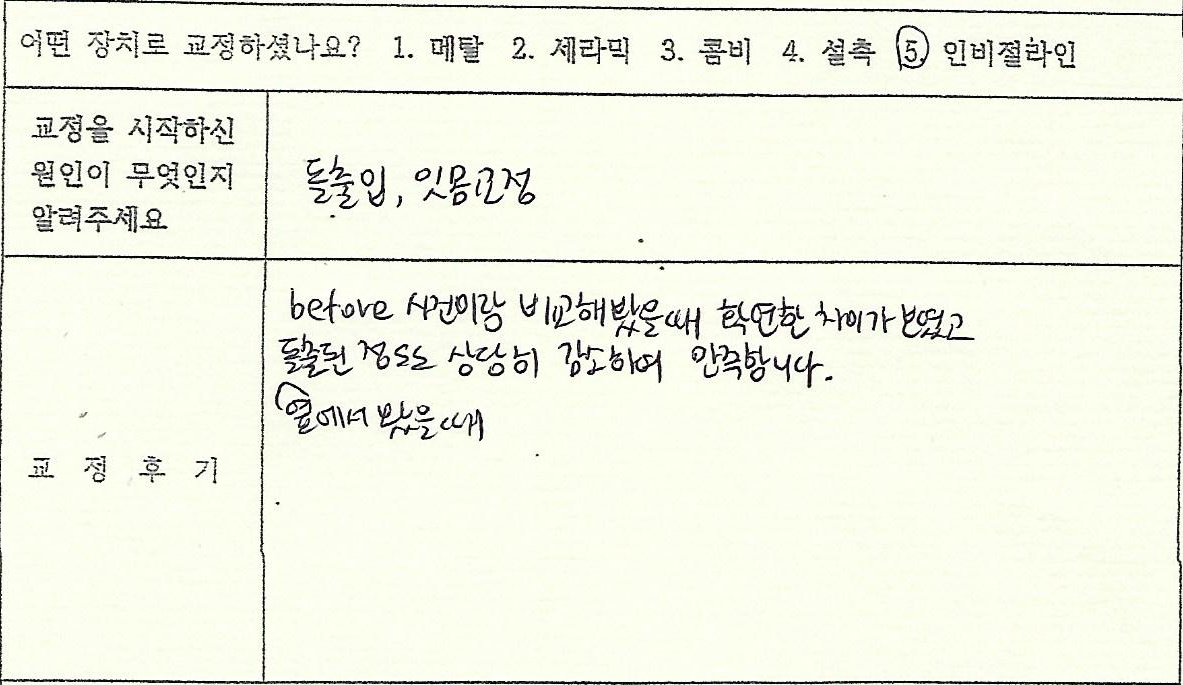 어떤 장치로 교정하셨나요? 1. 메탈 2. 세라믹 3. 콤비 4. 설측 5. 인비절라인
교정을 시작하신
원인이 무엇인지
알려주세요
돌출입, 잇몸교정
before 사진이랑 비교해봤을때 확연한 차이가 보였고
돌출된 정도도 상당히 감소하여 만족합니다.
옆에서 봤을때
교 정 후 기